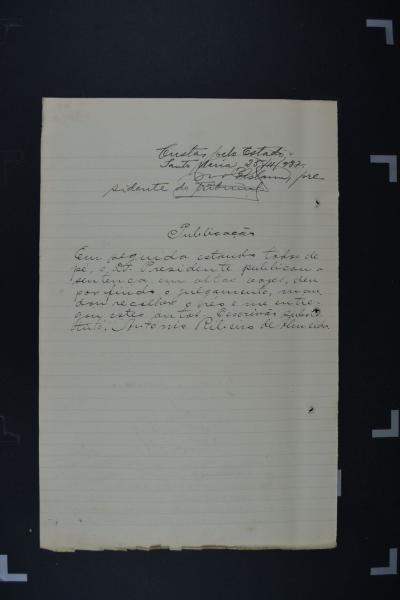 Custas pelo Estado.
Santa Maria, 25/11/937.
pre
sidente do Tribunal
Publicação
Em seguida estando todos de
pé, o Dr. Presidente publicou a
sentença em altas vozes, deu
por findo o julgamento, man
dou recolher o reo e me entre-
gou estes autos. Escrivão substi
tuto, Antonio Ribeiro de Almeida